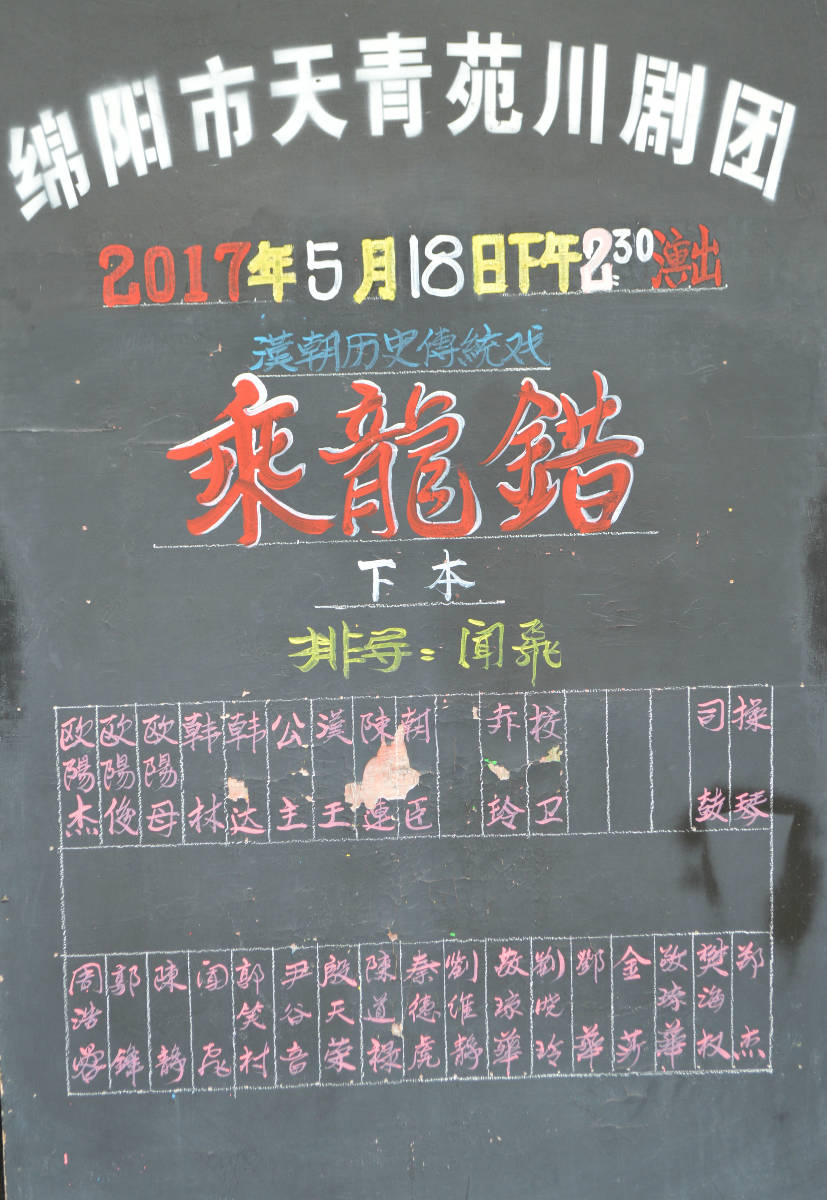 绵阳市天青苑川剧团
2017年5月18日下午2:30演出
漢朝历史傳統戏
乘龍錯
下本
排导：闻飛
欧陽杰 欧陽俊 欧陽母 韩林 韩达 公主 漢王 陳連 朝臣 乔玲 校卫 司鼓 操琴
周浩 郭鋒 陳静 闻飛 郭笑村 尹谷音 殷天荣 陳道禄 秦德虎 劉维静 敖琼華 劉晓玲 鄧華 金莎 敖琼華 樊海权 郑杰